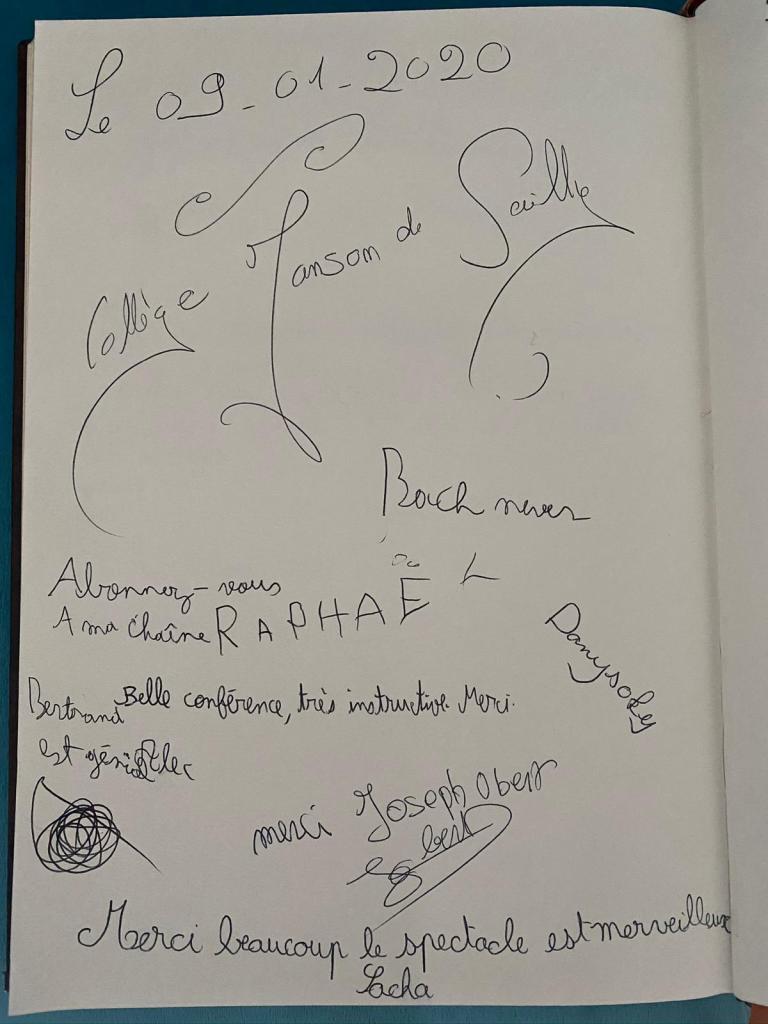 Le 09-01-2020
Collège Janson de Sailly
Bach never
Abonnez-vous
A ma chaîne RAPHAËL
Danysokes
Belle conférence, très instructive. Merci.
Bertrand
est génial
merci Joseph Obert
Merci beaucoup le spectacle est merveilleux
Sacha